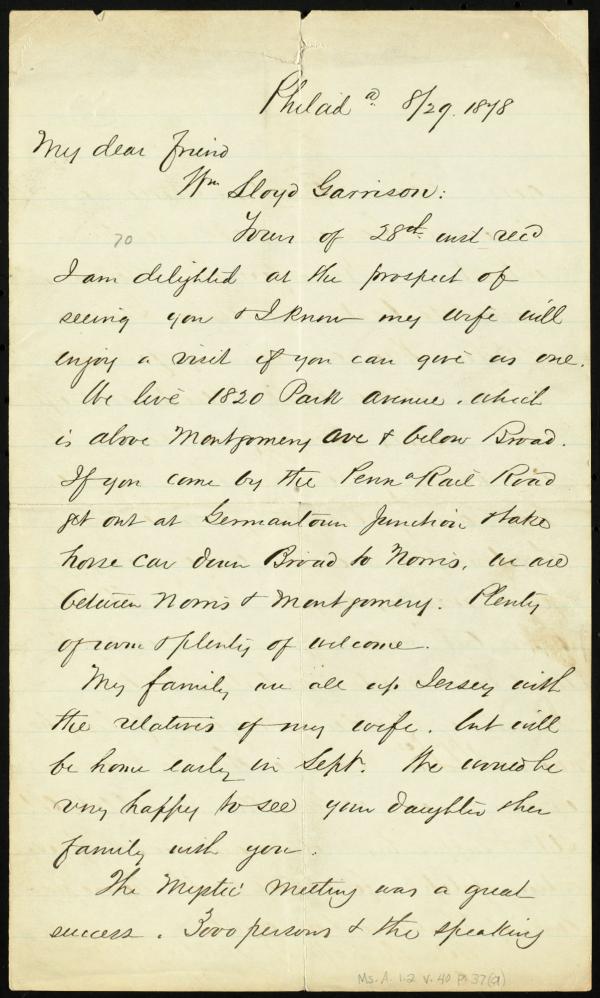 Philad a. 8/29. 1878
My dear friend
Wm Lloyd Garrison:
70
Yours of 28th inst rec'd
I am delighted at the prospect of
seeing you & I know my wife will
enjoy a visit if you can give us one.
We live 1820 Park Avenue. which
is above Montgomery Ave & below Broad.
If you come by the Penna Rail Road
get out at Germantown Junction & take
horse car down Broad to Norris, we are
between Norris & Montgomery. Plenty
of room & plenty of welcome.
My family are all up Jersey with
the relatives of my wife. but will
be home early in Sept. We would be
very happy to see your daughter & her
family with you.
The Mystic Meeting was a great
success. 3000 persons & the speaking
Ms. A. 1.2 v. 40 p. 37(a)